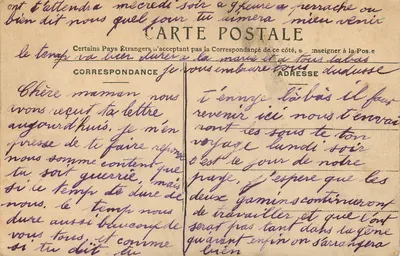 ont t'attendra mecredi soir a 9 heure a perrache ou
bien dit nous quel jour tu aimera mieu venir
CARTE POSTALE
Certains Pays Étrangers n'acceptant pas la Correspondance de ce côté, se renseigner à la Poste
le temp va bien durer a la maria et a tous labas
CORRESPONDANCE
ADRESSE
je vous embrasse tous
Chère maman nous
vons reçut ta lettre
aujourd'huis, je m'en
presse de te faire réponse
nous somme content que
tu soit guerrie, mais
si le temp te dure de
nous, le temp nous
dure aussi beucoup de
vous tous, et comme
si tu dit tu
t'ennye labàs il faut
revenir ici nous t'envai
ront les sous te ton
voyage lundi soir
c'est le jour de notre
paye, j'espere que les
deux gamins continueront
de travailler et que l'ont
serat pas tant dans la gêne
quavant enfin on s'arrangera
bien